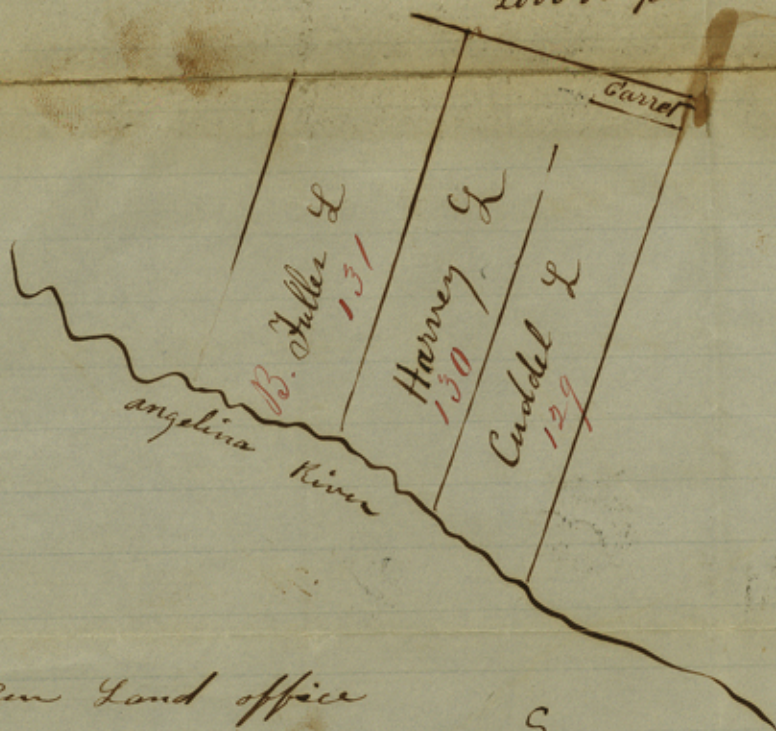 Garret
B. Fuller L
131
Harvey L
130
Cuddel L
129
angelina River
Land office